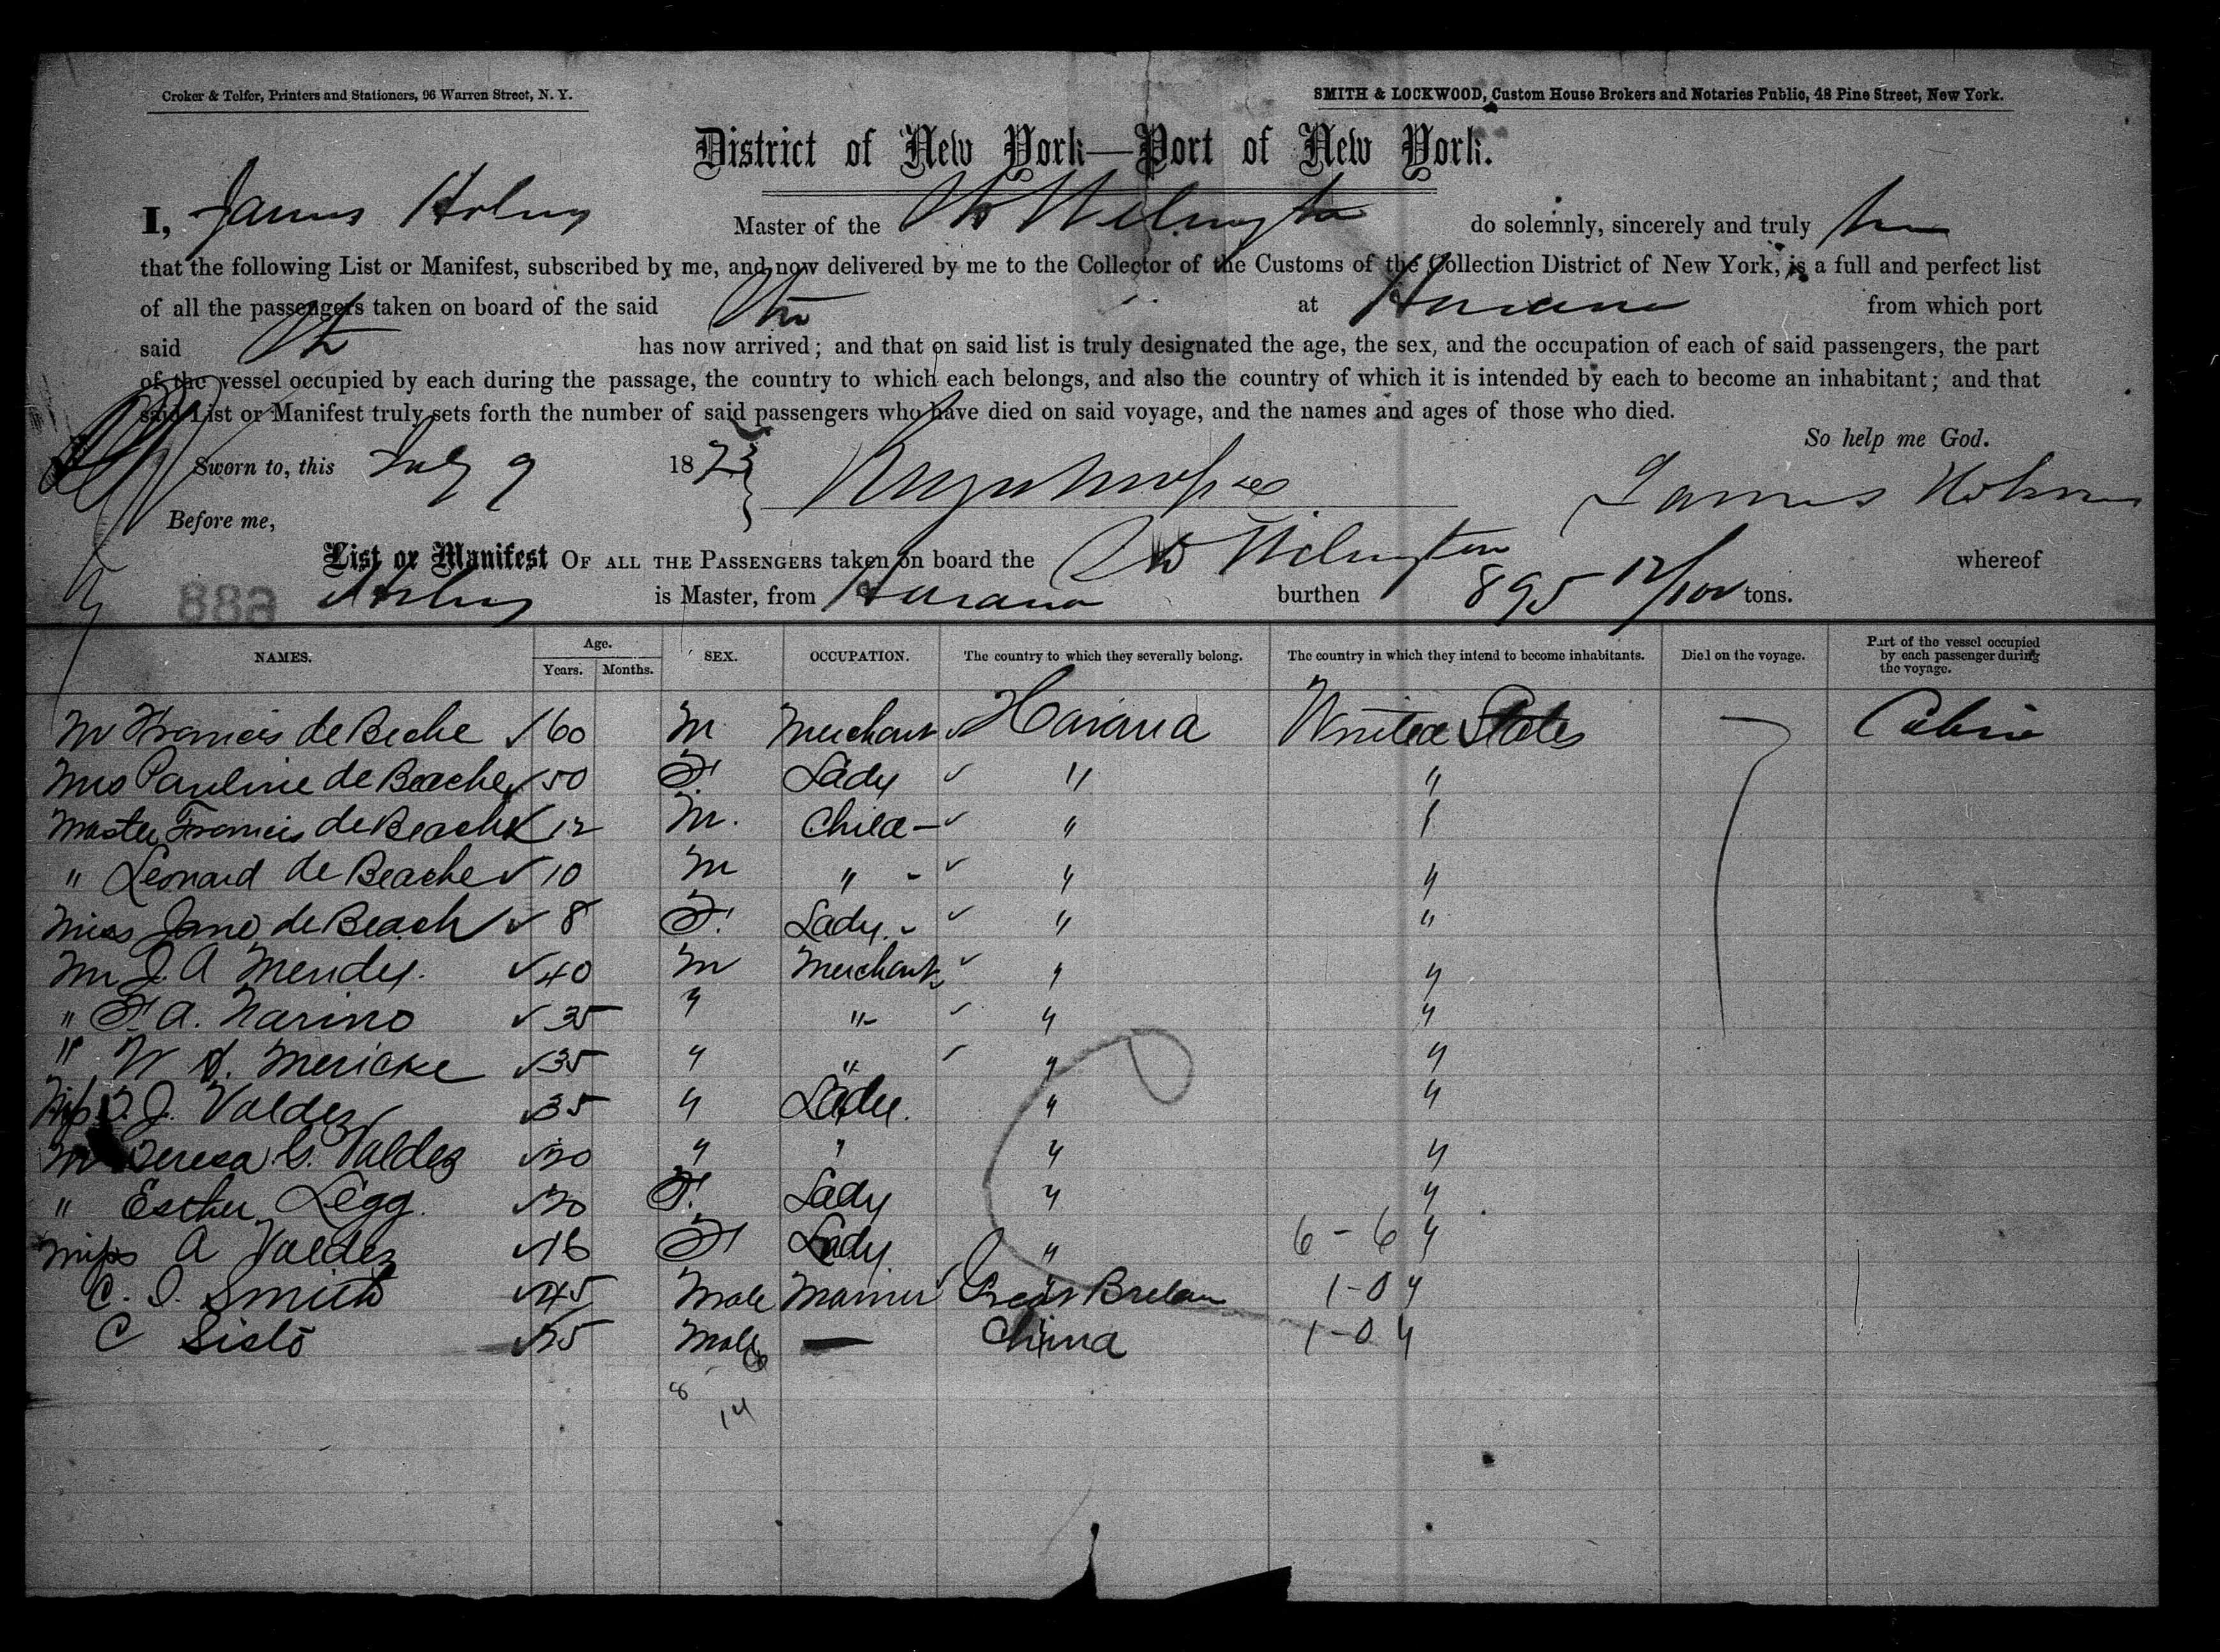 Croker & Telfer, Printers and Stationers, 96 Warren Street, N. Y.
SMITH & LOCKWOOD, Custom House Brokers and Notaries Public, 48 Pine Street, New York.
District of New York—Port of New York.
I, James Holmes Master of the Wilmington do solemnly, sincerely and truly
that the following List or Manifest, subscribed by me, and now delivered by me to the Collector of the Customs of the Collection District of New York, is a full and perfect list
of all the passengers taken on board of the said Str at Havana from which port
said Str has now arrived; and that on said list is truly designated the age, the sex, and the occupation of each of said passengers, the part
of the vessel occupied by each during the passage, the country to which each belongs, and also the country of which it is intended by each to become an inhabitant; and that
said List or Manifest truly sets forth the number of said passengers who have died on said voyage, and the names and ages of those who died.
So help me God.
Sworn to, this July 9 1873
James Holmes
Before me,
List or Manifest OF ALL THE PASSENGERS taken on board the Wilmington whereof
Holmes is Master, from Havana burthen 895 12/100 tons.
888
NAMES. Age. Years. Months. SEX. OCCUPATION. The country to which they severally belong. The country in which they intend to become inhabitants. Died on the voyage. Part of the vessel occupied by each passenger during the voyage.
Mr Francis de Beche 60 M Merchant Havana United States Cabin
Mrs Pauline de Beache 50 F Lady " "
Master Francis de Beache 12 M. Child " "
" Leonard de Beache 10 M " " "
Miss Jane de Beach 8 F. Lady. " "
Mr J. A Mendy. 40 M Merchant " "
" F. A. Narino 35 " " " "
" W Mericke 35 " " " "
J. Valdez 35 " Lady. " "
Teresa G. Valdez 20 " " " "
" Esther Legg. 20 F. Lady " "
Miss A Valdez 16 F Lady. " 6-6 "
C. I. Smith 45 Male Mariner 1-0 "
C Sisto 25 Male — China 1-0 "
8
14